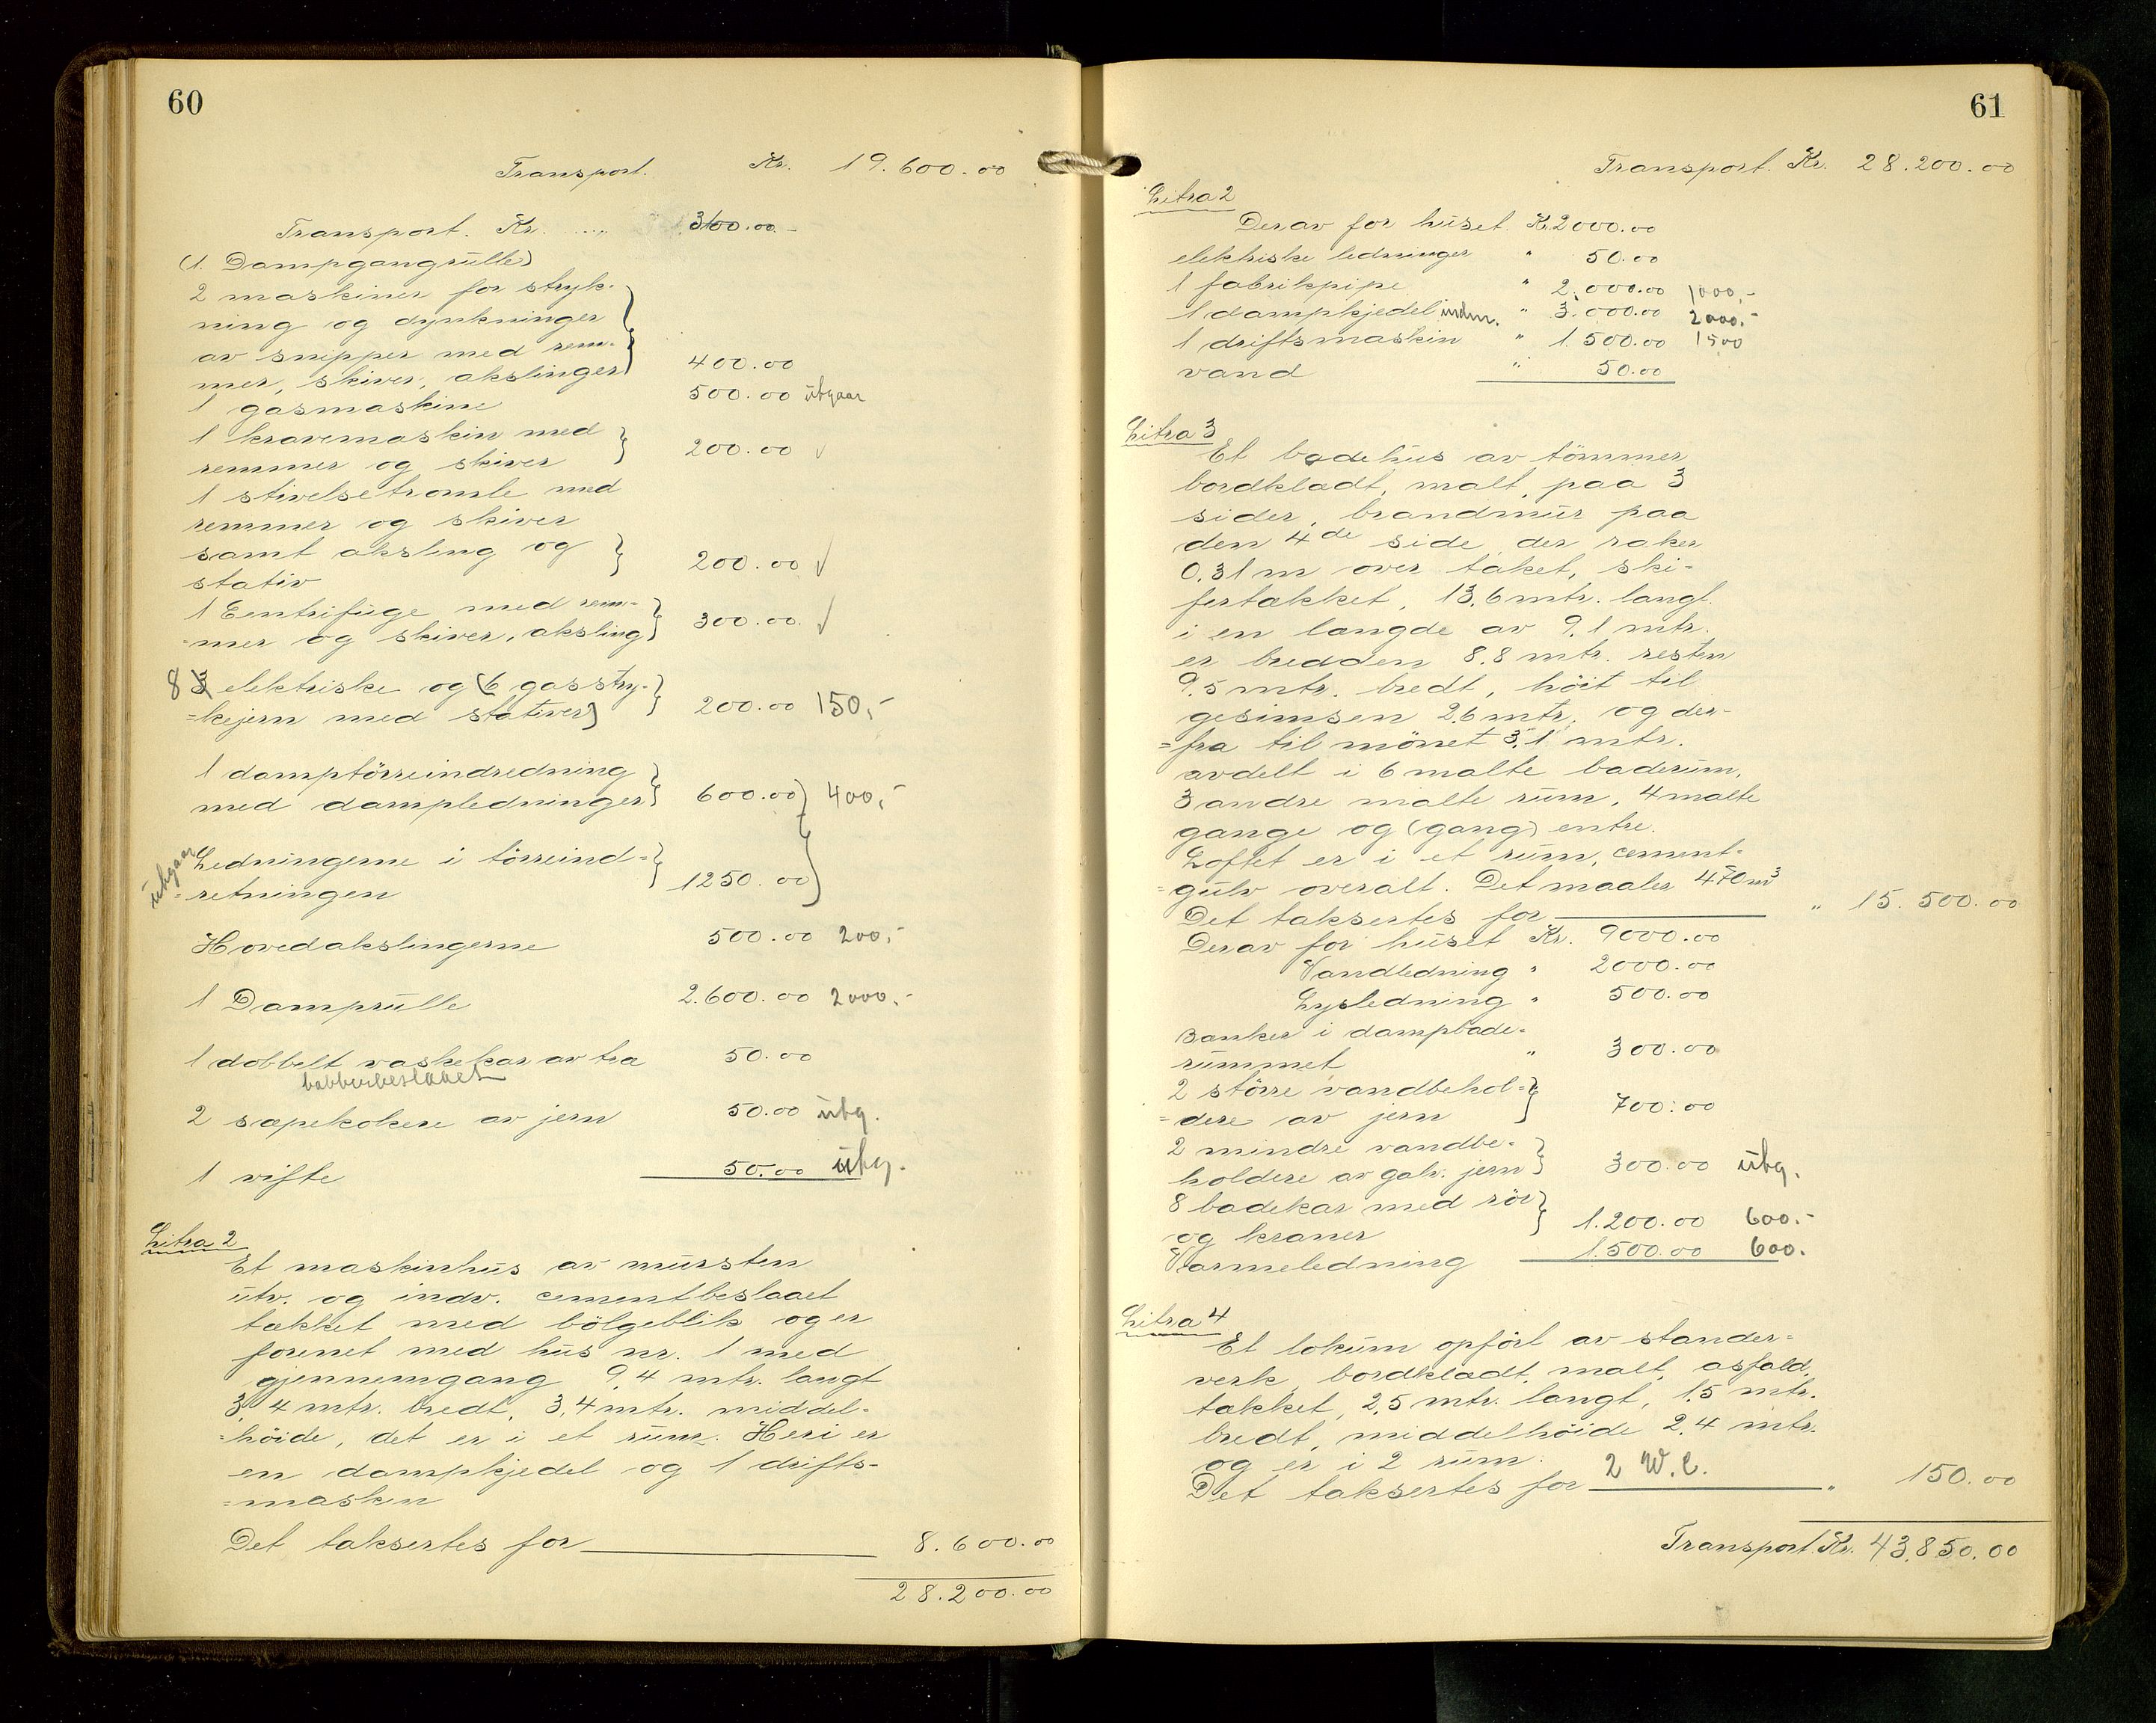 60
Transport. Kr. 19.600.00
Transport. Kr. .... 3100.00.-
(1. Dampgangrülle)
2 maskiner for stryk-
ning og dynkninger
av snipper med rem-
mer, skiver, akslinger} 400.00
1 gasmaskine 500.00 ütgaar
1 kravemaskin med
remmer og skiver } 200.00 √
1 stivelsetromle med
remmer og skiver
samt aksling og } 200.00 √
stativ
1 Centrifüge med rem-
=mer og skiver, aksling} 300.00. √
8 3 elektriske og (6 gasstry-
=kejern med stativer) } 200.00 150,-
1 damptörreindredning
med dampledninger} 600.00 } 400,-
ütgaar Ledningerne i törreind-
=retningen } 1250.00
Hovedakslingerne 500.00 200,-
1 Damprülle 2.600.00 2000.-
1 dobbelt vaskekar av træ 50.00
kobberbeslaaet
2 sæpekokere av jern 50.00 ütg.
1 vifte 50.00 ütg.
Litra 2
Et maskinhüs av mürsten
ütv. og indv. cementbeslaaet
tækket med bölgeblik og er
forenet med hüs nr. 1 med
gjennemgang 9,4 mtr. langt
3,4 mtr. bredt, 3,4 mtr. middel-
=höide, det er i et rüm. Heri er
en dampkjedel og 1 drifts-
=maskin
Det taksertes for 8.600.00
28.200.00
61
Transport. Kr. 28.200.00
Litra 2
Derav for hüset Kr. 2000.00
elektriske ledninger " 50.00
1 fabrikpipe " 2.000.00 1000,-
1 dampkjedel indm. " 3.000.00 2000.-
1 driftsmaskin " 1.500.00 1500
vand " 50.00
Litra 3
Et badehüs av tömmer
bordklædt, malt, paa 3
sider, brandmür paa
den 4de side der raker
0,31 m over taket, ski-
fertækket, 13,6 mtr. langt.
i en længde av 9,1 mtr.
er bredden 8.8 mtr. resten
9,5 mtr. bredt, höit til
gesimsen 2.6 mtr, og der-
=fra til mönet 3,1 mtr.
avdelt i 6 malte baderüm,
3 andre malte rüm, 4 malte
gange og (gang) entre.
Loftet er i et rüm, cement-
=gülv overalt. Det maaler 470 m3
Det taksertes for " 15.500.00
Derav for hüset Kr. 9000.00
Vandledning " 2000.00
Lysledning " 500.00
Bænker i dampbade-
rümmet " 300.00
2 större vandbehol-
=dere av jern } 700.00
2 mindre vandbe-
holdere av galv. jern } 300.00 ütg.
8 badekar med rör
og kraner } 1.200.00 600.-
Varmeledning 1.500.00 600.
Litra 4
Et loküm opfört av stander-
verk, bordklædt, malt, asfald,
tækket, 2,5 mtr. langt, 1,5 mtr.
bredt, middelhöide 2,4 mtr.
og er i 2 rüm.
Det taksertes for 2 W.C. " 150.00
Transport. Kr. 43.850.00